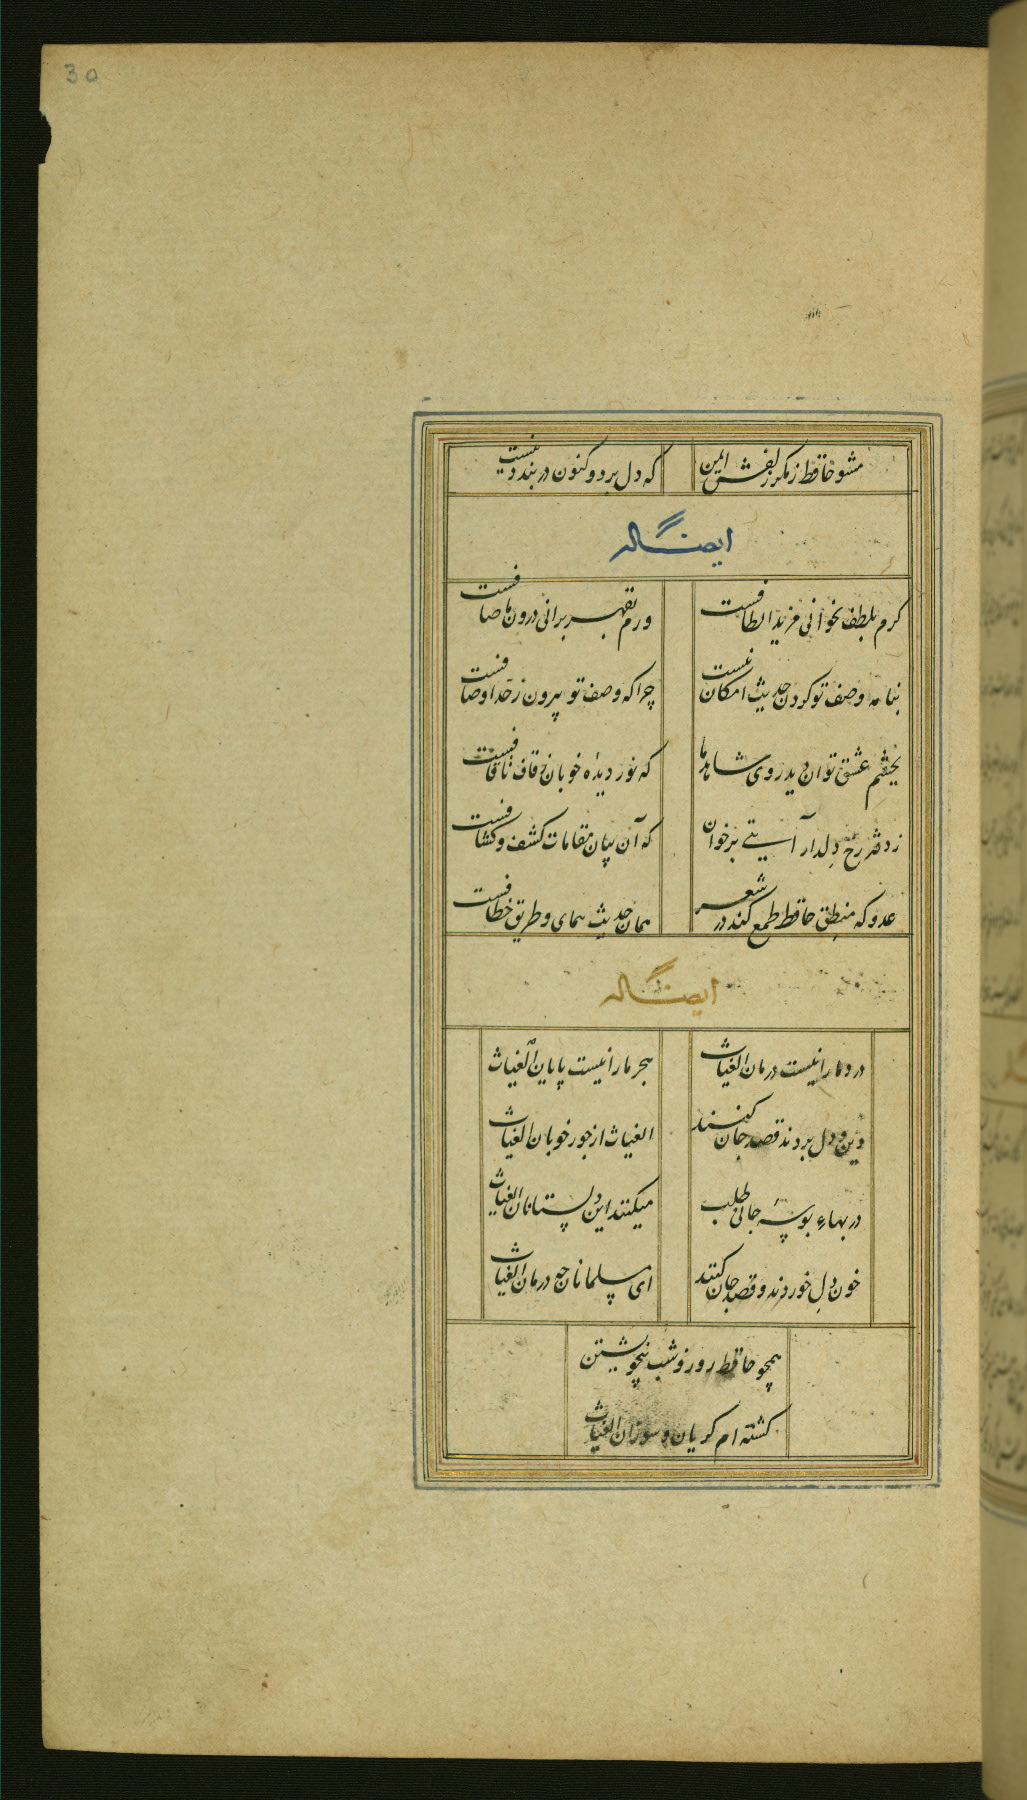 30
مشو حافظ ز مکر زلفش ایمن
که دل برد و کنون در بند دینست
ایضاً له
کرم بلطف بخوانی مزید الطافست
ورم بقهر برانی درون ما صافست
بنامه وصف تو کردن حدیث امکان نیست
چرا که وصف تو بیرون ز حد اوصافست
بچشم عشق توان دید روی شاهد ما
که نور دیده خوبان ز قاف تا قافست
ز دفتر رخ دلدار آیتی برخوان
که آن بیان مقامات کشف و کشافست
عدو که منطق حافظ طمع کند در شعر
همان حدیث همای و طریق خطافست
ایضاً له
درد ما را نیست درمان الغیاث
هجر ما را نیست پایان الغیاث
دین و دل بردند قصد جان کنند
الغیاث از جور خوبان الغیاث
در بهاء بوسهٔ جانی طلب
میکنند این دلستانان الغیاث
خون دل خوردند و قصد جان کنند
ای مسلمانان چه درمان الغیاث
همچو حافظ روز و شب بیخویشتن
کشته ام کریان و سوزان الغیاث